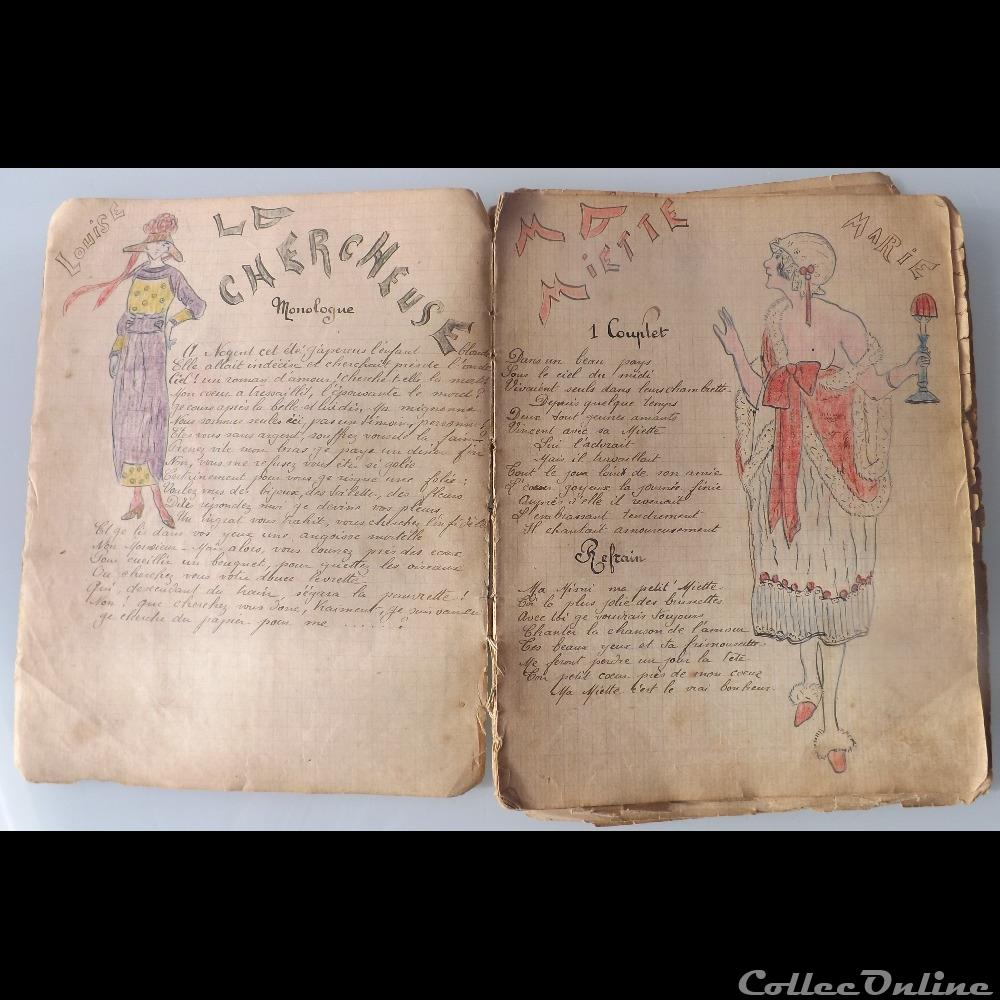 LOUISE
LA
CHERCHEUSE
Monologue
A Nogent cet été, j'aperçus l'enfant blonde
Elle allait indécise et cherchait près de l'onde
Ciel! un roman d'amour, cherche t-elle la mort
Mon cœur a tressailli, l'épouvante le mord?
Je cours après la belle et lui dis, ça mignonne
Nous sommes seules ici, pas un témoin, personne!
Etes vous sans argent, souffrez vous de la faim?
Prenez vite mon bras je paye un diner fin
Non, vous me refusez vous êtes si jolie
pour vous je risque une folie:
Voulez vous des bijoux, des toilettes, des fleurs
Dite répondez moi je devine vos pleurs
Un ingrat vous trahit, vous cherchez
Et je lis dans vos yeux une angoisse mortelle
Non Monsieur - Mais alors, vous courez près des eaux
Pour cueillir un bouquet, pour guettez les oiseaux
Ou cherchez vous votre douce levrette
Qui, descendant du train, s'égara la pauvrette!
Non! que cherchez vous donc, Vraiment, je suis
je cherche du papier pour me ......?
MA
MIETTE
MARIE
1 Couplet
Dans un beau pays
Sous le ciel du midi
Vivaient seuls dans leurs chambrette
Depuis quelque temps
Deux tout jeunes amants
Vincent avec sa Miette
Lui l'adorait
Mais il travaillait
Tout le jour loin de son amie
L' cœur joyeux la journée finie
Auprès d'elle il revenait
L'embrassant tendrement
Il chantait amoureusement
Refrain
Ma Mismi ma petit' Miette
Toi la plus jolie des brunettes
Avec toi je voudrais toujours
Chanter la chanson de l'amour
Tes beaux yeux et ta frimousette
Me feront perdre un jour la tête
Ton petit cœur près de mon cœur
Ma Miette c'est le vrai bonheur.
CollecOnline